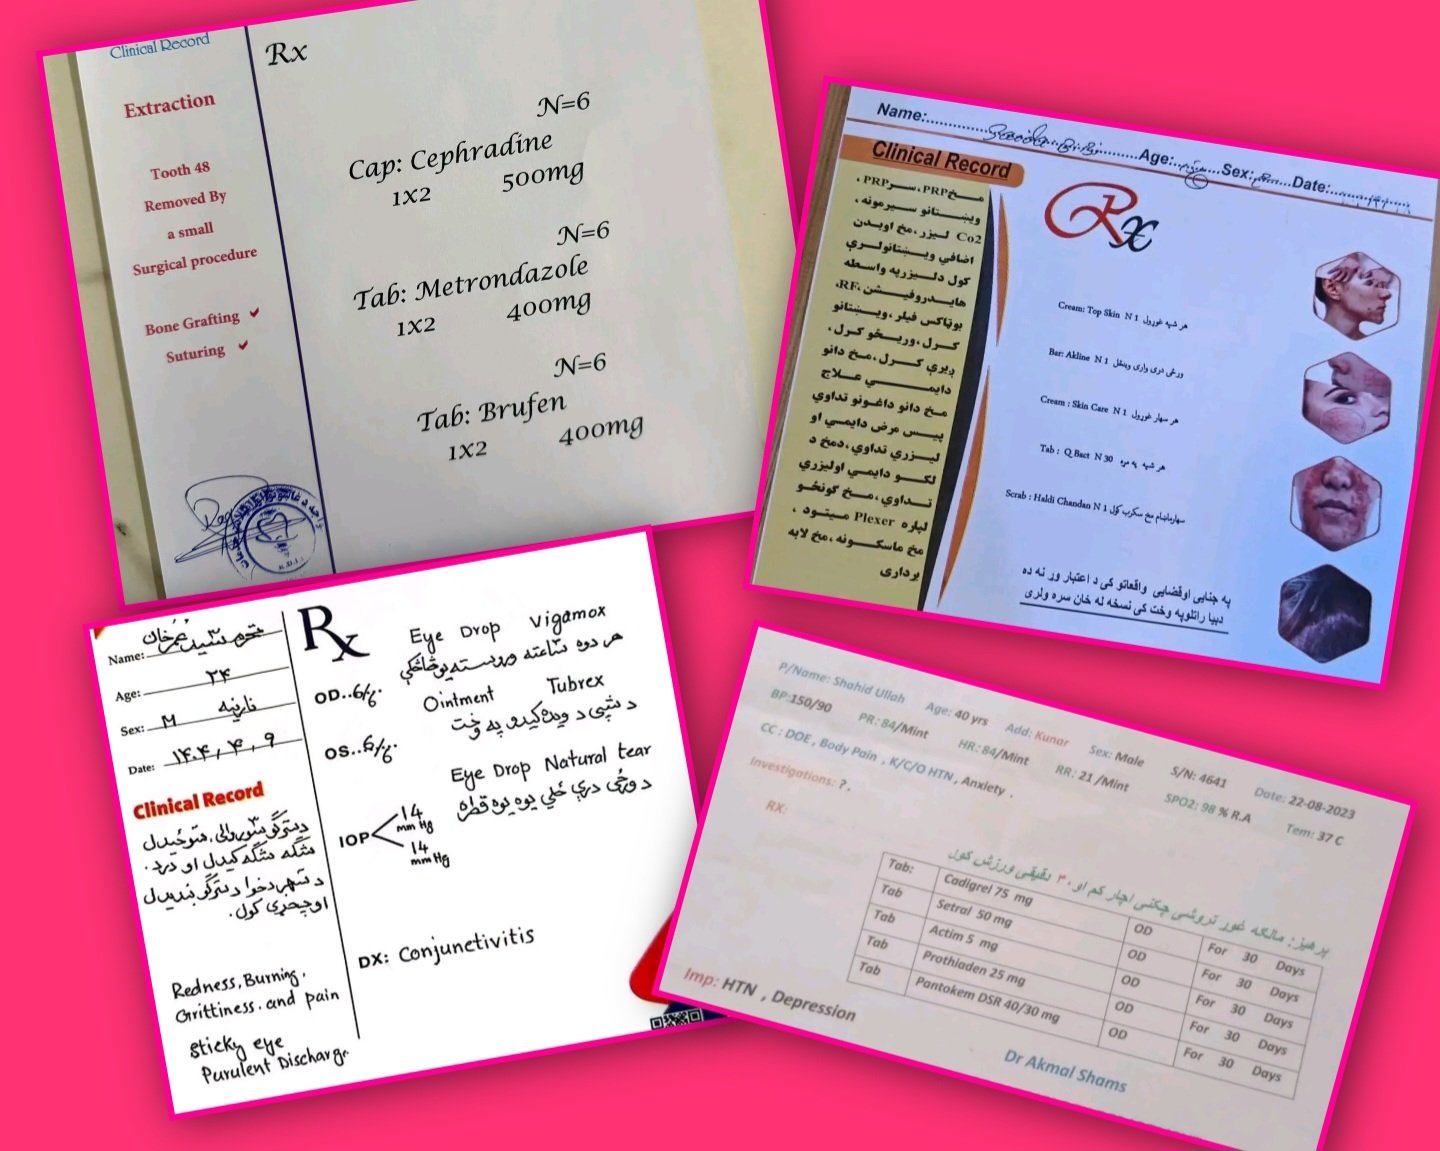 Clinical Record
Rx
Extraction
Tooth 48
Removed By
a small
Surgical procedure
Bone Grafting ✓
Suturing ✓
N=6
Cap: Cephradine
1x2 500mg
N=6
Tab: Metrondazole
1x2 400mg
N=6
Tab: Brufen
1x2 400mg
Name: Age: Sex: Date:
Clinical Record
Rx
مخ PRP، سر PRP،
ویښتانو سیرمونه،
Co2 لیزر، مخ اوبدن
اضافي ویښتانولرې
کول دلیزرپه واسطه
هایدروفیشن، RF،
بوټاکس فیلر، ویښتانو
کرل، وریځو کرل،
ږیرې کرل، مخ دانو
دایمي علاج
مخ دانو داغونو تداوي
پیس مرض دایمي او
لیزري تداوي، دمخ د
لکو دایمي اولیزري
تداوي، مخ ګونځو
لپاره Plexer میتود،
مخ ماسکونه، مخ لابه
برداری
Cream: Top Skin N 1 هر شپه غوړول
Bar: Akline N 1 ورځی دری واری وینځل
Cream : Skin Care N 1 هر سهار غوړول
Tab : Q Bact N 30 هر شپه یه مړه
Scrub : Haldi Chandan N 1 سهارماښام مخ سکرب کول
په جنایی اوقضایی واقعاتو کی د اعتبار وړ نه ده
دبیا راتلوپه وخت کی نسخه له ځان سره ولری
Name: خان
Age: ۲۴
Sex: M نارینه
Date: ۱۴۰۴, ۴, ۹
Clinical Record
دسترګو سوروالی، سوځیدل
شګه شګه کیدل او درد.
د سهر دخوا دسترګو بندیدل
اوچحړی کول.
Redness, Burning,
Grittiness. and pain
sticky eye
Purulent Discharge
Rx
Eye Drop Vigamox
هر دوه ساعته وروسته یوڅاڅکي
OD..6/6.
Ointment Tubrex
د شپې د ویده کیدو په وخت
OS..6/6.
Eye Drop Natural tear
د ورځې درې ځلي یوه یوه قطره
IOP 14 mm Hg
14 mm Hg
DX: Conjunetivitis
P/Name: Shahid Ullah Age: 40 yrs Add: Kunar Sex: Male S/N: 4641 Date: 22-08-2023
BP:150/90 PR: 84/Mint HR: 84/Mint RR: 21 /Mint SPO2: 98 % R.A Tem: 37 C
CC : DOE , Body Pain , K/C/O HTN , Anxiety .
Investigations: ? .
RX:
پرهیز: مالګه غوړ تروشی چکنی اچار کم او ۳۰ دقیقی ورزش کول
Tab: Cadigrel 75 mg OD For 30 Days
Tab Setral 50 mg OD For 30 Days
Tab Actim 5 mg OD For 30 Days
Tab Prothiaden 25 mg OD For 30 Days
Tab Pantokem DSR 40/30 mg OD For 30 Days
Imp: HTN , Depression
Dr Akmal Shams